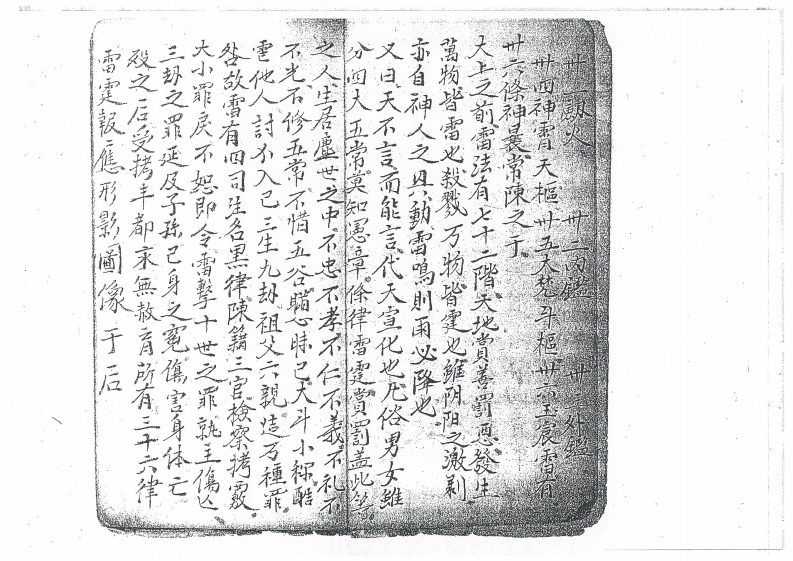 卅一歘火　卅二內鑑　卅三外鑑
卅四神霄天樞卅五大梵斗樞卅六玉宸雷有
卅六條神晨常陳之于
大上之前雷法有七十二階天地賞善罰惡發生
萬物皆雷也殺戮万物皆霆也雖阴阳之激剥
亦自神人之具動雷鳴則雨必降也
又曰天不言而能言代天宣化也凡俗男女雖
分四大五常莫知憲章條律雷霆賞罰盖此等
之人生居塵世之中不忠不孝不仁不義不礼不
不光不修五常不惜五谷瞞心昧己大斗小秤酷
他人討不入己三生九劫祖父六親造万種罪
咎故雷有四司注名黑律陳籍三官檢察拷覈
大小罪戾不恕即令雷擊十世之罪孰主傷亡
三劫之罪延及子孫己身之冤傷害身体亡
殁之后受拷丰都永無赦宥所有三十六律
雷霆報應形影圖像于后